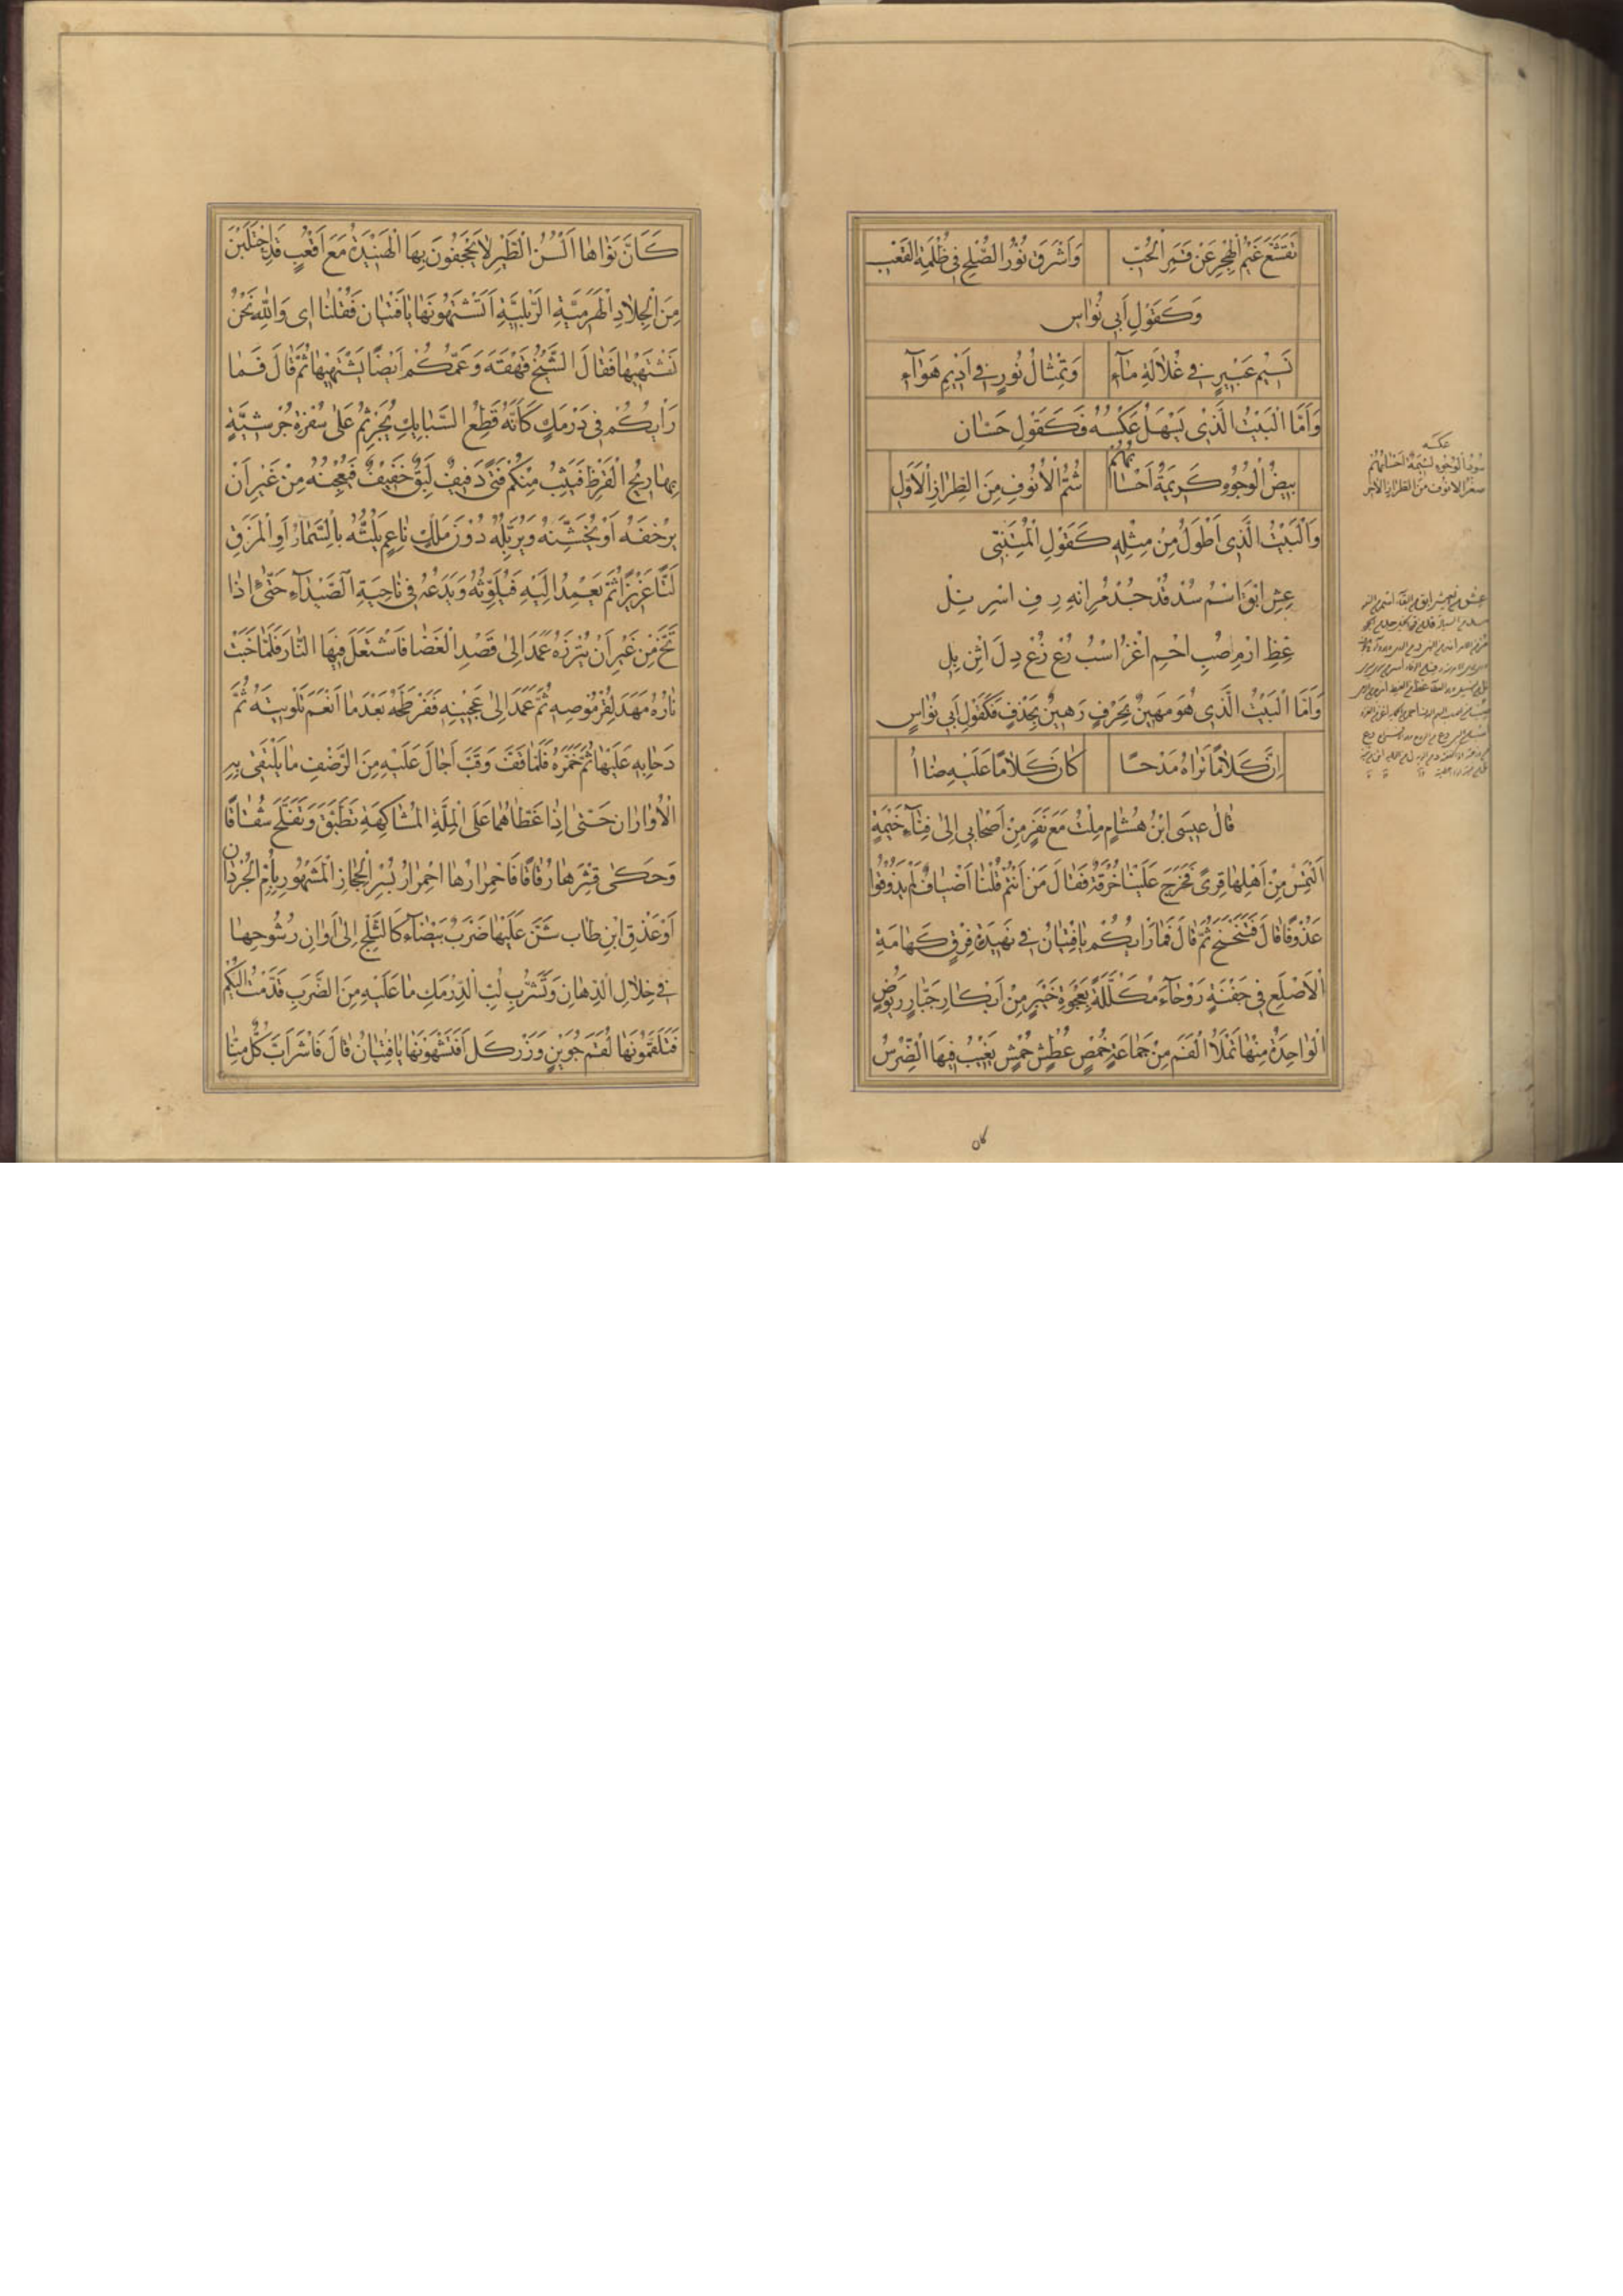 تَقَشَّعَ غَيْمُ الْهَجْرِ عَنْ قَمَرِ الْحُبِّ وَاَشْرَقَ نُوْرُ الصُّلْحِ فِي ظُلْمَةِ الْعَتْبِ
وَكَقَوْلِ اَبِي نُوَاسٍ
نَسِيْمُ عَبِيْرٍ فِي غُلَالَةِ مَآءٍ وَتِمْثَالُ نُوْرٍ فِي اَدِيْمِ هَوَآءٍ
وَاَمَّا الْبَيْتُ الَّذِي يَسْهُلُ عَكْسُهُ فَكَقَوْلِ حَسَّان
بِيْضُ الْوُجُوْهِ كَرِيْمَةٌ اَحْسَابُهُمْ شُمُّ الْاُنُوْفِ مِنَ الطِّرَازِ الْاَوَّلِ
وَالْبَيْتُ الَّذِي اَطْوَلُ مِنْ مِثْلِهِ كَقَوْلِ الْمُتَنَبِّي
عِشِ ابْقَ اسْمُ سُدْ قُدْ جُدْ مُرِ انْهَ رِ فِ اسْرِ نِلْ
غِظِ ارْمِ صِبِ احْمِ اغْزُ اسْبُ رُعْ زَعْ دِ لَ اثْنِ بِلِ
وَاَمَّا الْبَيْتُ الَّذِي هُوَ مَهِيْنٌ بِحَرْفٍ رَهِيْنٌ بِحَذْفٍ فَكَقَوْلِ اَبِي نُوَاسٍ
اِنَّ كَلَامًا تَرَاهُ مَدْحًا كَانَ كَلَامًا عَلَيْهِ ضَاأُ
قَالَ عِيْسَى ابْنُ هُشَامٍ مِلْتُ مَعَ نَفَرٍ مِنْ اَصْحَابِي اِلَى فِنَآءِ خَيْمَةٍ
اَلْتَمِسُ مِنْ اَهْلِهَا قِرًى فَخَرَجَ عَلَيْنَا حُزُقَّةٌ فَقَالَ مَنْ اَنْتُمْ قُلْنَا اَضْيَافٌ لَمْ يَذُوْقُوْا
عَذُوْفًا قَالَ فَتَنَحْنَحَ ثُمَّ قَالَ فَمَا رَاْيُكُمْ يَا فِتْيَانُ فِي نَهِيْدَةِ فِرْقٍ كَهَامَةِ
الْاَصْلَعِ فِي جَفْنَةٍ رَوْحَآءَ مُكَلَّلَةٍ بِعَجْوَةِ خَيْبَرٍ مِنْ اَبْكَارِ جَبَّارٍ رَبُوْضٍ
الْوَاحِدَةُ مِنْهَا تَمْلَأُ الْفَمَ مِنْ جَمَاعَةٍ خُمْصٍ عُطْشٍ خُمْشٍ يَغِيْبُ فِيْهَا الضِّرْسُ
كان
عكسه
سُوْدُ الْوُجُوْهِ لَئِيْمَةٌ اَحْسَابُهُمْ
فطس الانوف من الطراز الآخر
كَاَنَّ نَوَاهَا اَلْسُنُ الطَّيْرِ لَا يَجْحَفُوْنَ بِهَا الْهَبِيْدَةَ مَعَ اَقْعُبٍ قَدِ احْتُلِبْنَ
مِنَ الْجِلَادِ الْهَرَمِيَّةِ الرَّبْلِيَّةِ اَتَشْتَهُوْنَهَا يَا فِتْيَان فَقُلْنَا اِى وَاللّٰهِ نَحْنُ
نَشْتَهِيْهَا فَقَالَ الشَّيْخُ قَهْقَهَ وَعَمُّكُمْ اَيْضًا يَشْتَهِيْهَا ثُمَّ قَالَ فَمَا
رَاْيُكُمْ فِي دَرْمَكٍ كَاَنَّهُ قِطَعُ السَّبَايِكِ يُجَرْثَمُ عَلَى سُفْرَةٍ حُرْشِيَّةٍ
بِهَا رِيْحُ الْقَرَظِ فَيَثِبُ مِنْكُمْ فَتًى دَفِيْفٌ لَبِقٌ خَفِيْفٌ فَيَعْجِنُهُ مِنْ غَيْرِ اَنْ
يَرْخَفَهُ اَوْ يُخَشِّنَهُ وَيُرَبِّلُهُ دُوْنَ مَلْكٍ نَاعِمٍ يَلُتُّهُ بِالسَّمَارِ اَوِ الْمَزَقِ
لَتًّا غَزِيْزًا ثُمَّ يَعْمِدُ اِلَيْهِ فَيُلَوِّثُهُ وَيَدَعُهُ فِي نَاحِيَةِ الصَّيْدَآءِ حَتَّى اِذَا
تَخَّ مِنْ غَيْرِ اَنْ يُتَرِّزَهُ عَمَدَ اِلَى قَصْدِ الْغَضَا فَاشْتَعَلَ فِيْهَا النَّارَ فَلَمَّا خَبَتْ
نَارُهُ مَهَدَ لِقُرْمُوْصِهِ ثُمَّ عَمَدَ اِلَى عَجِيْنِهِ فَفَرْطَحَهُ بَعْدَمَا اَنْعَمَ تَلْوِيْثَهُ ثُمَّ
دَحَابِهِ عَلَيْهَا ثُمَّ خَمَّرَهُ فَلَمَّا قَفَّ وَقَبَّ اَحَالَ عَلَيْهِ مِنَ الرَّضْفِ مَا يَلْتَقِي بِهِ
الْاُوَارَانِ حَتَّى اِذَا غَطَّاهُمَا عَلَى الْمَلَّةِ الْمُشَاكِهَةِ تَطَبَّقَ وَتَفَلَّحَ شُقَاقًا
وَحَكَى قِشْرُهَا رُقَاقًا فَاحْمِرَارُهَا احْمِرَارُ بُسْرِ الْحِجَازِ الْمَشْهُوْرِ بِاُمِّ الْجُرْذَان
اَوْ عَذْقِ ابْنِ طَاب شُنَّ عَلَيْهَا ضَرَبٌ بَيْضَآءُ كَالثَّلْجِ اِلَى اَوَانِ رُسُوْحِهَا
فِي خِلَالِ الدِّهَانِ وَتَشَرُّبِ لُبِّ الدَّرْمَكِ مَا عَلَيْهِ مِنَ الضَّرَبِ قُدِّمَتْ اِلَيْكُمْ
فَتَلَقَّمُوْنَهَا لَقْمَ جُوَيْنٍ وَزَرْكَلَ اَفَتَشْتَهُوْنَهَا يَا فِتْيَانُ قَالَ فَاشْرَاَبَّ كُلٌّ مِنَّا